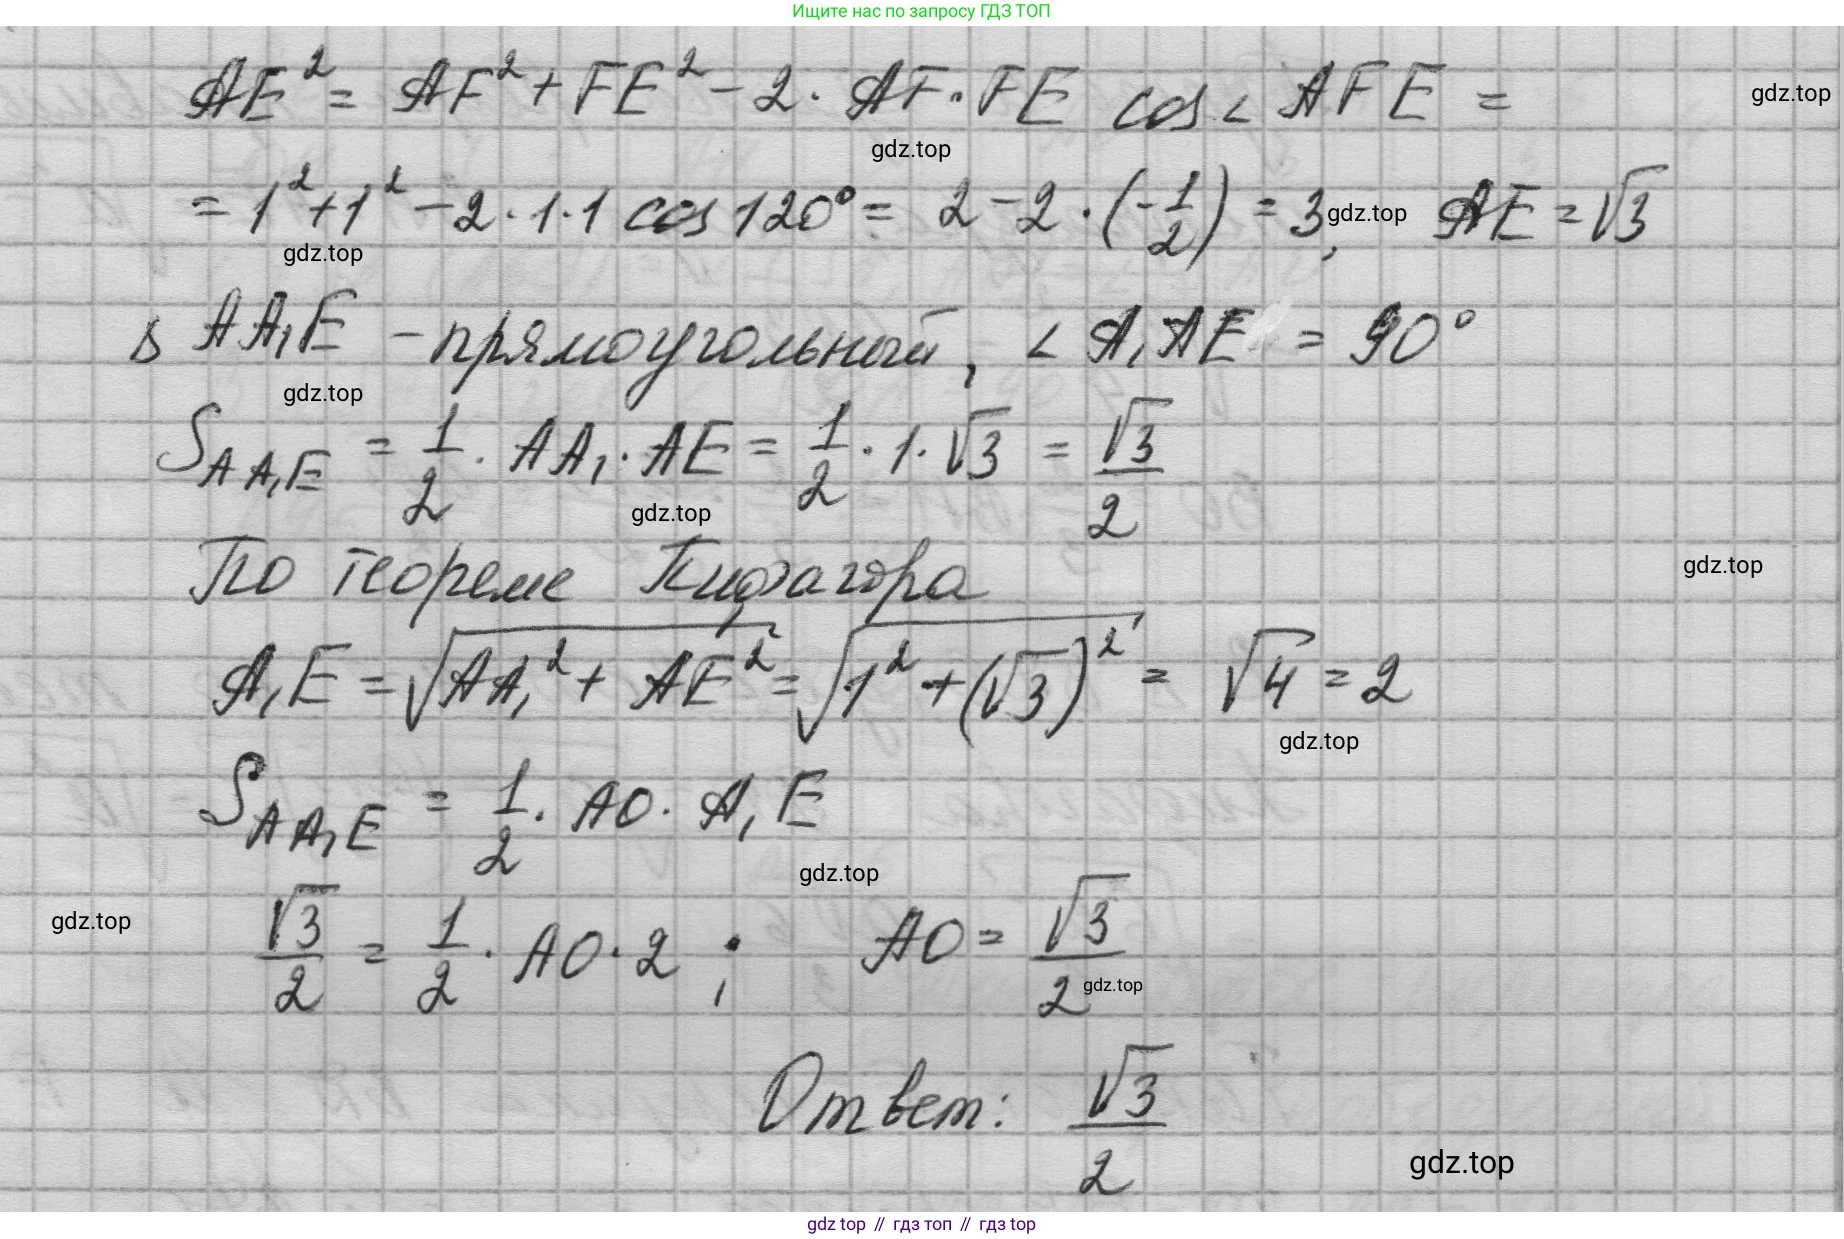 Ищите нас по запросу ГДЗ ТОП
AE² = AF² + FE² - 2 · AF · FE cos ∠ AFE =
gdz.top
gdz.top
= 1² + 1² - 2 · 1 · 1 cos 120° = 2 - 2 · (-1/2) = 3, AE = √3
gdz.top
gdz.top
Δ AA₁E - прямоугольный, ∠ A₁AE = 90°
gdz.top
S_AA₁E = 1/2 · AA₁ · AE = 1/2 · 1 · √3 = √3/2
gdz.top
По теореме Пифагора
gdz.top
A₁E = √(AA₁² + AE²) = √(1² + (√3)²) = √4 = 2
gdz.top
S_AA₁E = 1/2 · AO · A₁E
gdz.top
gdz.top
√3/2 = 1/2 · AO · 2 ; AO = √3/2
gdz.top
Ответ: √3/2
gdz.top
gdz top // гдз топ // гдз top